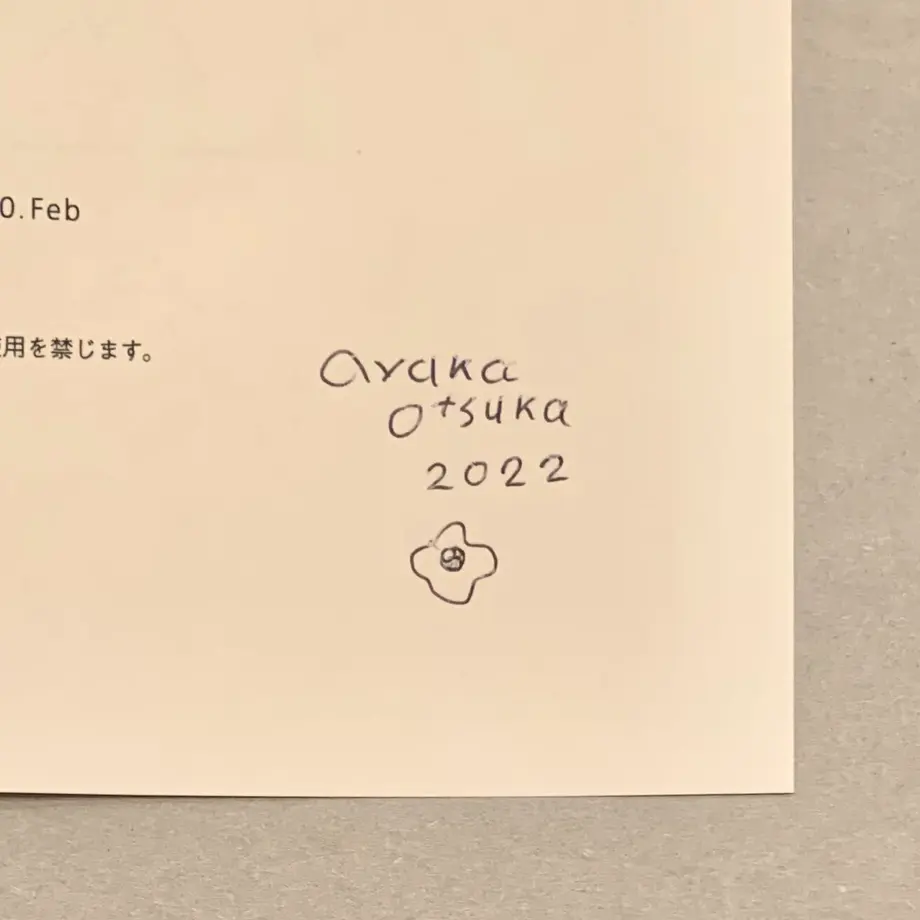 0.Feb
使用を禁じます。
ayaka
otsuka
2022